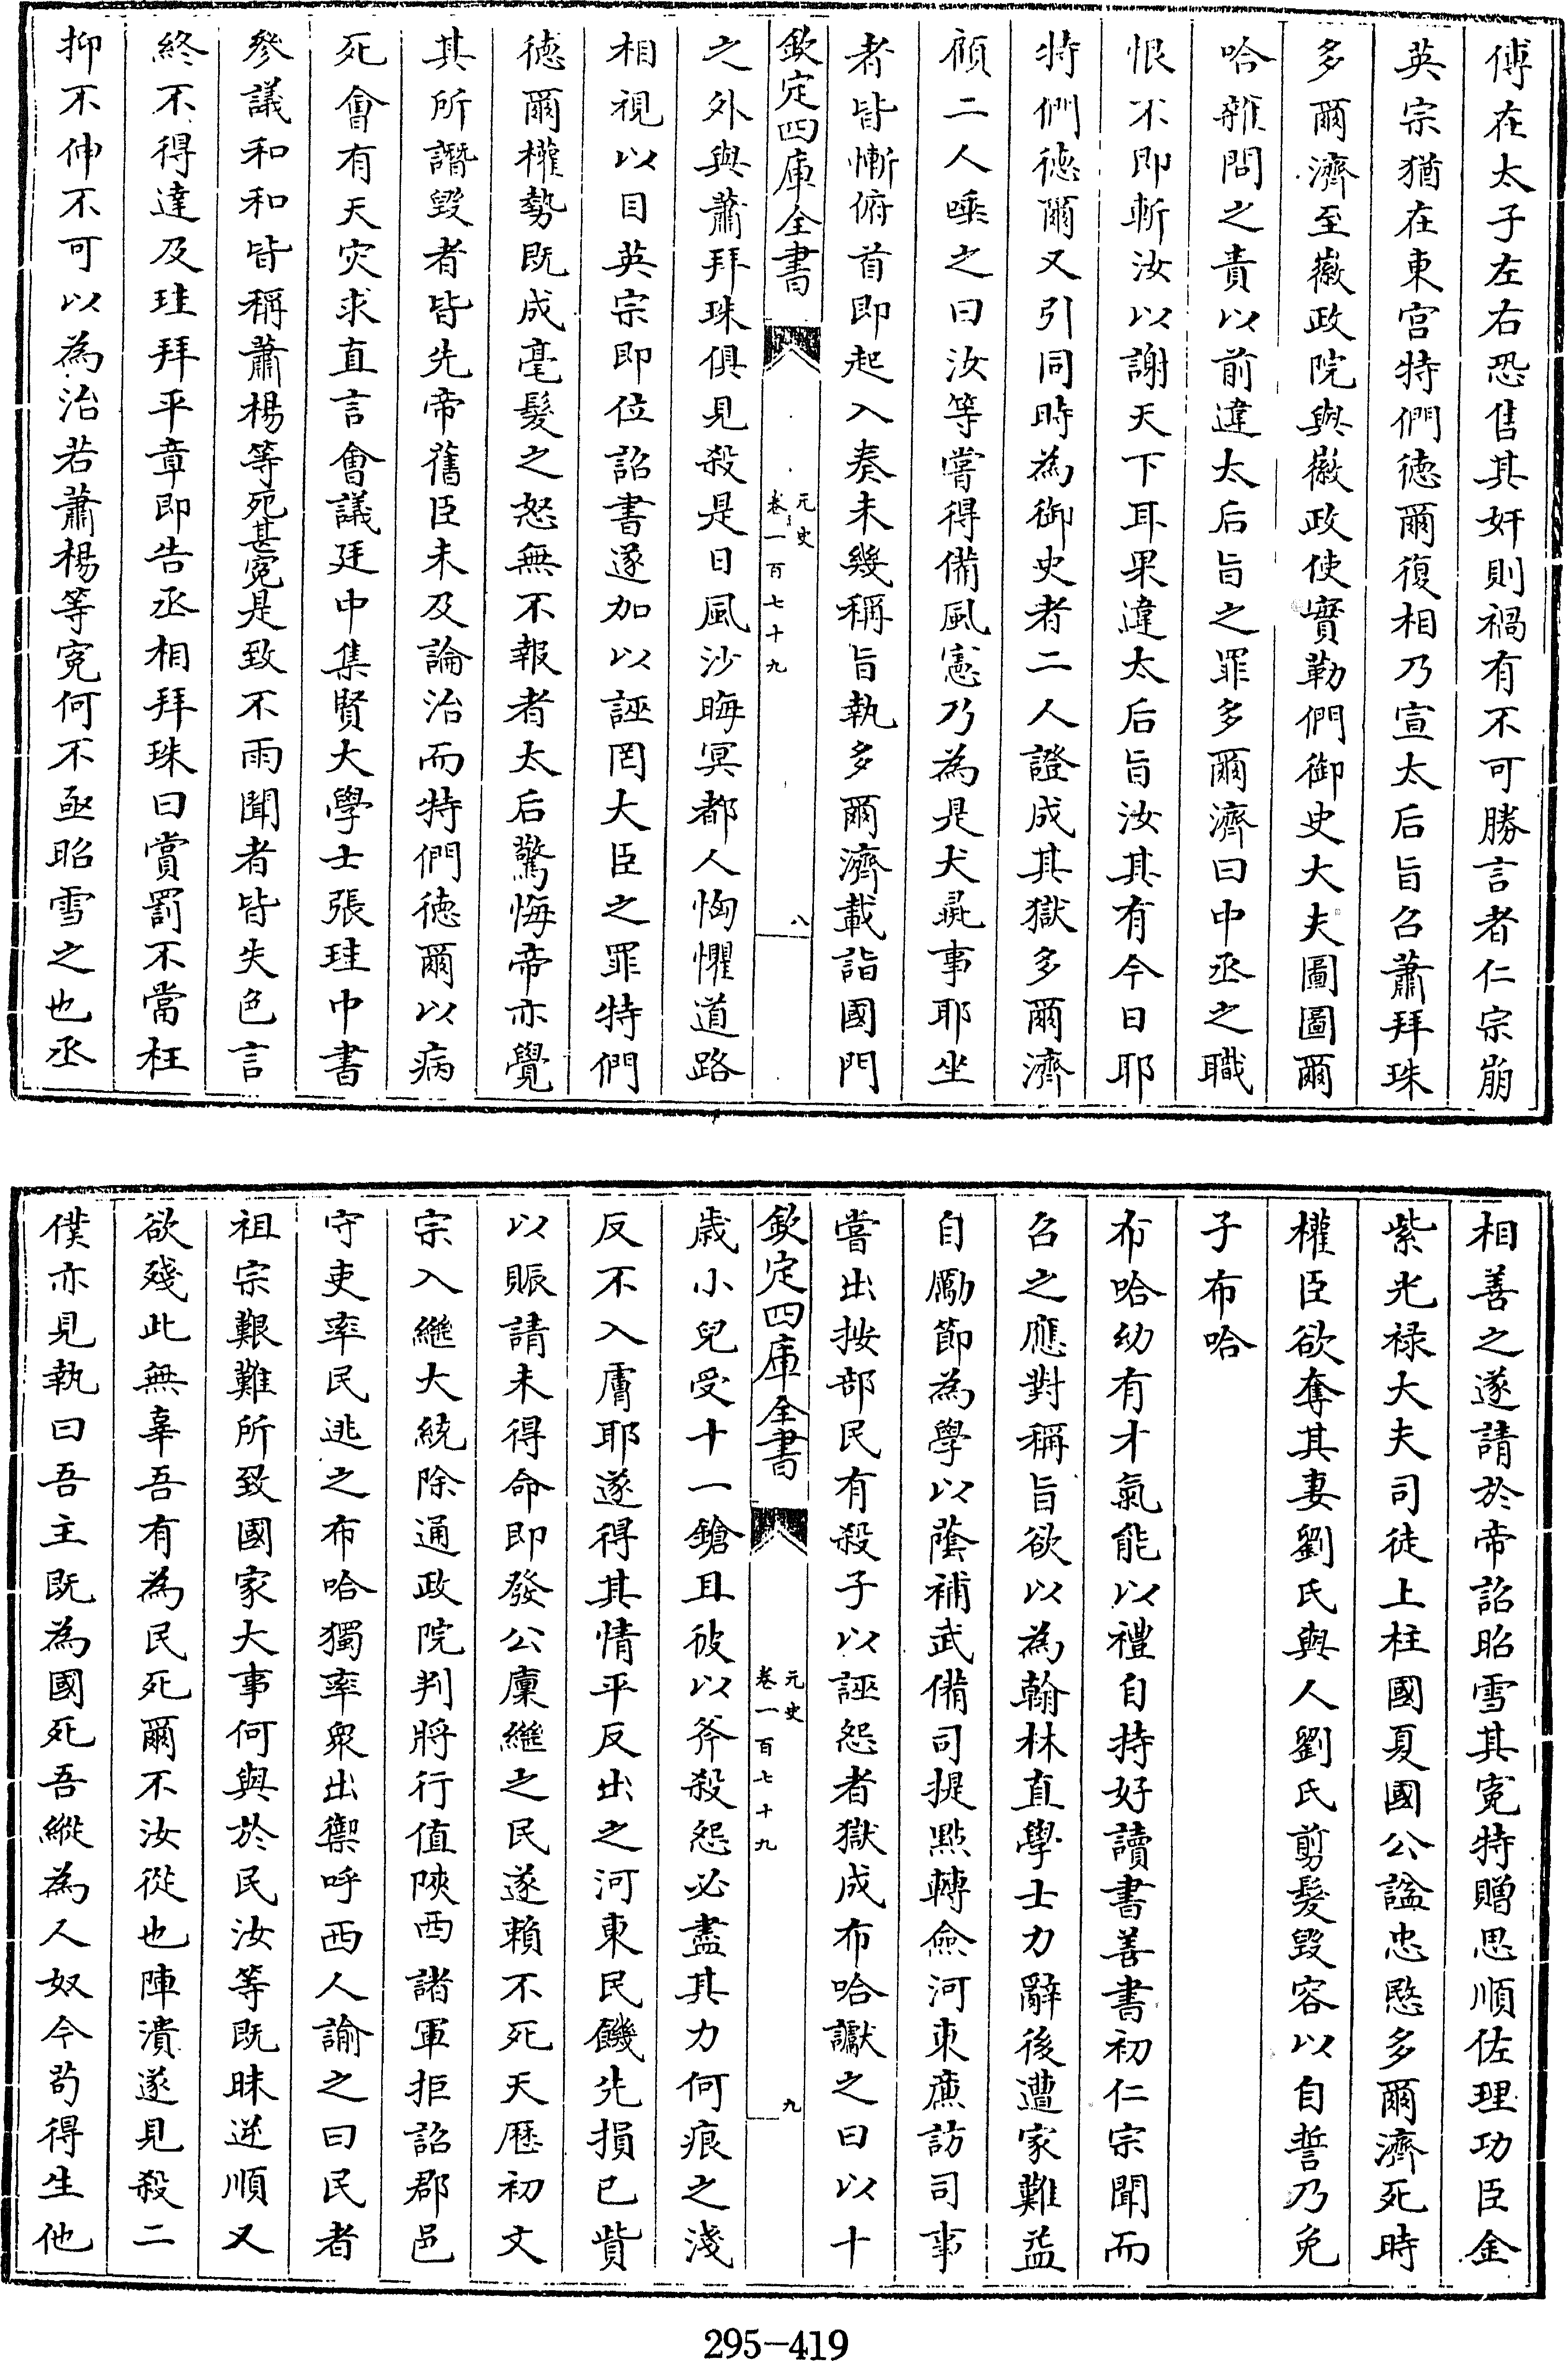 傅在太子左右恐售其奸則禍有不可勝言者仁宗崩
英宗猶在東宫特們徳爾復相乃宣太后旨召蕭拜珠
多爾濟至徽政院與徽政使實勒們御史大夫圖圖爾
哈雜問之責以前違太后旨之罪多爾濟曰中丞之職
恨不即斬汝以謝天下耳果違太后旨汝其有今日耶
特們徳爾又引同時為御史者二人證成其獄多爾濟
顧二人唾之曰汝等嘗得備風憲乃為是犬彘事耶坐
者皆慚俯首即起入奏未幾稱旨執多爾濟載詣國門
欽定四庫全書
元史
卷一百七十九
八
之外與蕭拜珠俱見殺是日風沙晦冥都人恟懼道路
相視以目英宗即位詔書遂加以誣罔大臣之罪特們
徳爾權勢既成毫髮之怒無不報者太后驚悔帝亦覺
其所譖毀者皆先帝舊臣未及論治而特們徳爾以病
死會有天灾求直言會議廷中集賢大學士張珪中書
參議和和皆稱蕭楊等死甚寃是致不雨聞者皆失色言
終不得達及珪拜平章即告丞相拜珠曰賞罰不當枉
抑不伸不可以為治若蕭楊等寃何不亟昭雪之也丞
相善之遂請於帝詔昭雪其寃特贈思順佐理功臣金
紫光禄大夫司徒上柱國夏國公諡忠愍多爾濟死時
權臣欲奪其妻劉氏與人劉氏剪髮毀容以自誓乃免
子布哈
布哈幼有才氣能以禮自持好讀書善書初仁宗聞而
召之應對稱旨欲以為翰林直學士力辭後遭家難益
自勵節為學以蔭補武備司提點轉僉河東廉訪司事
嘗出按部民有殺子以誣怨者獄成布哈讞之曰以十
欽定四庫全書
元史
卷一百七十九
九
歲小兒受十一鎗且彼以斧殺怨必盡其力何痕之淺
反不入膚耶遂得其情平反出之河東民饑先損已貲
以賑請未得命即發公廩繼之民遂賴不死天厯初文
宗入繼大統除通政院判將行值陜西諸軍拒詔郡邑
守吏率民逃之布哈獨率衆出禦呼西人諭之曰民者
祖宗艱難所致國家大事何與於民汝等既昧逆順又
欲殘此無辜吾有為民死爾不汝從也陣潰遂見殺二
僕亦見執曰吾主既為國死吾縱為人奴今茍得生他
295-419